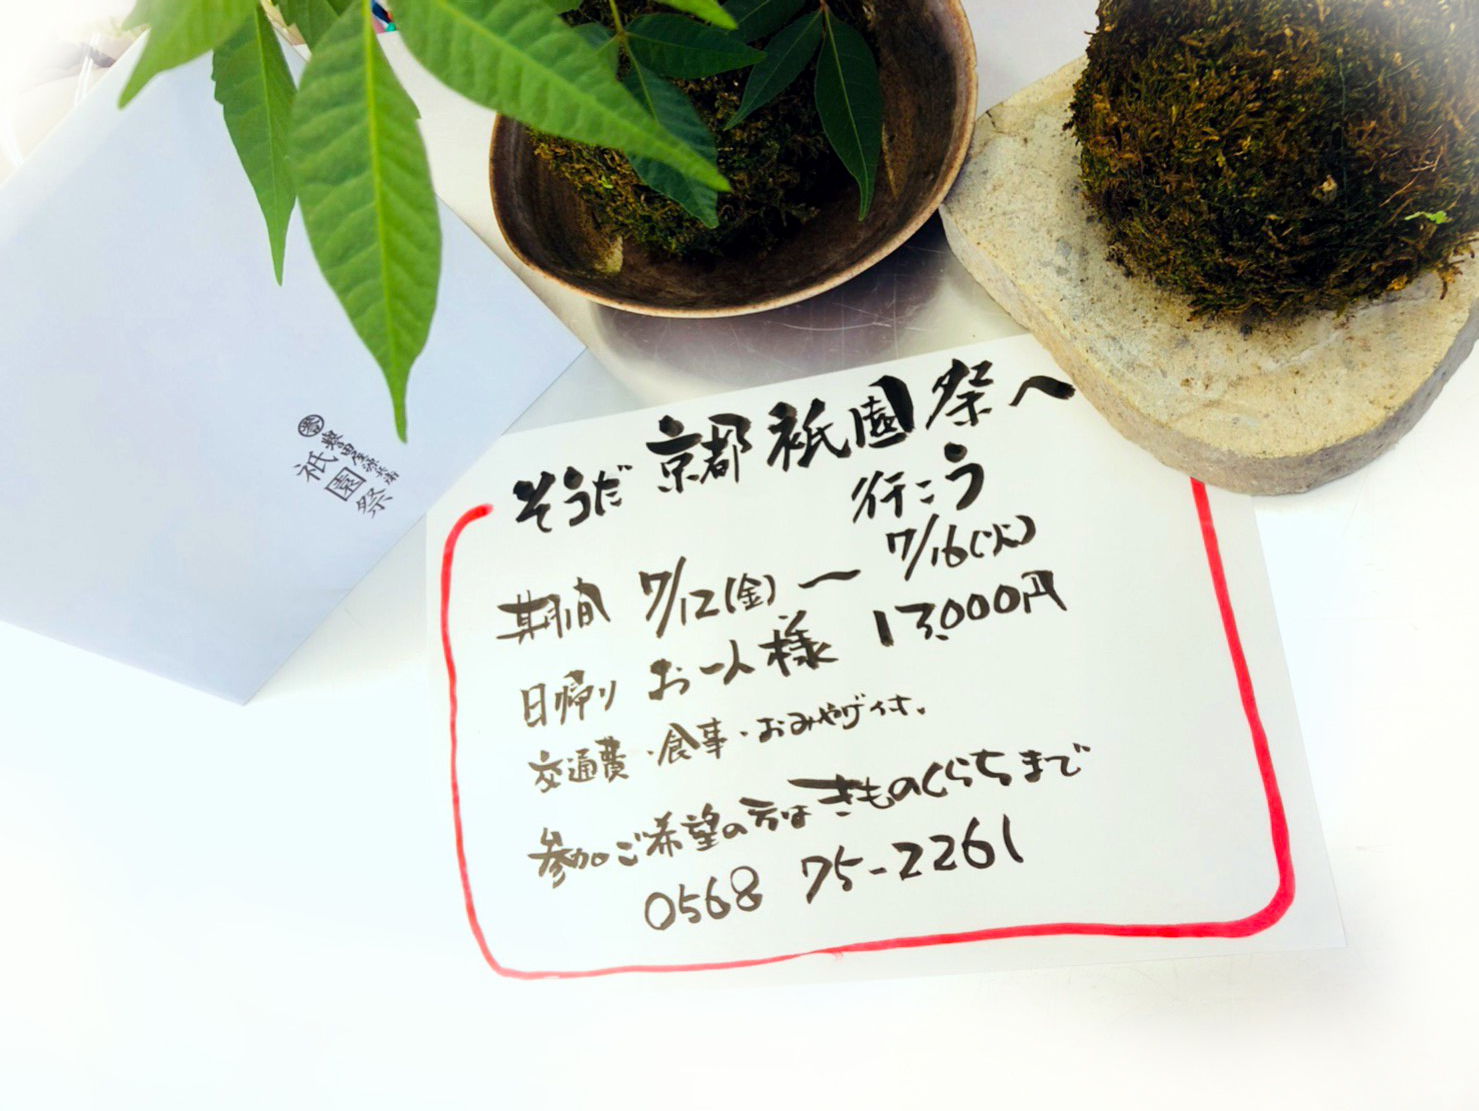 そうだ 京都 祇園祭へ
行こう
期間 7/12(金)〜7/16(火)
日帰り お一人様 13,000円
交通費・食事・おみやげ付き。
参加ご希望の方はきものくらちまで
0568 75-2261
祇園祭